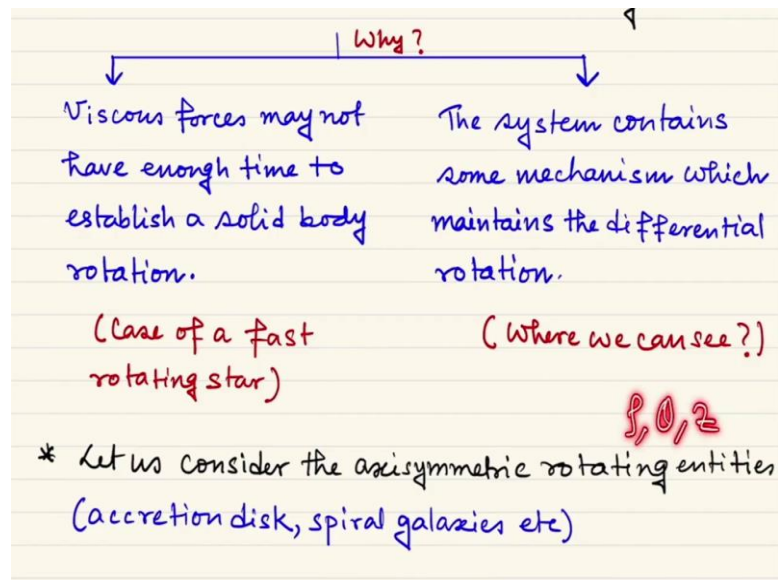 Why?
Viscous forces may not
have enough time to
establish a solid body
rotation.
(Case of a fast
rotating star)
The system contains
some mechanism which
maintains the differential
rotation.
(Where we can see?)
ρ, θ, z
* Let us consider the axisymmetric rotating entities
(accretion disk, spiral galaxies etc)